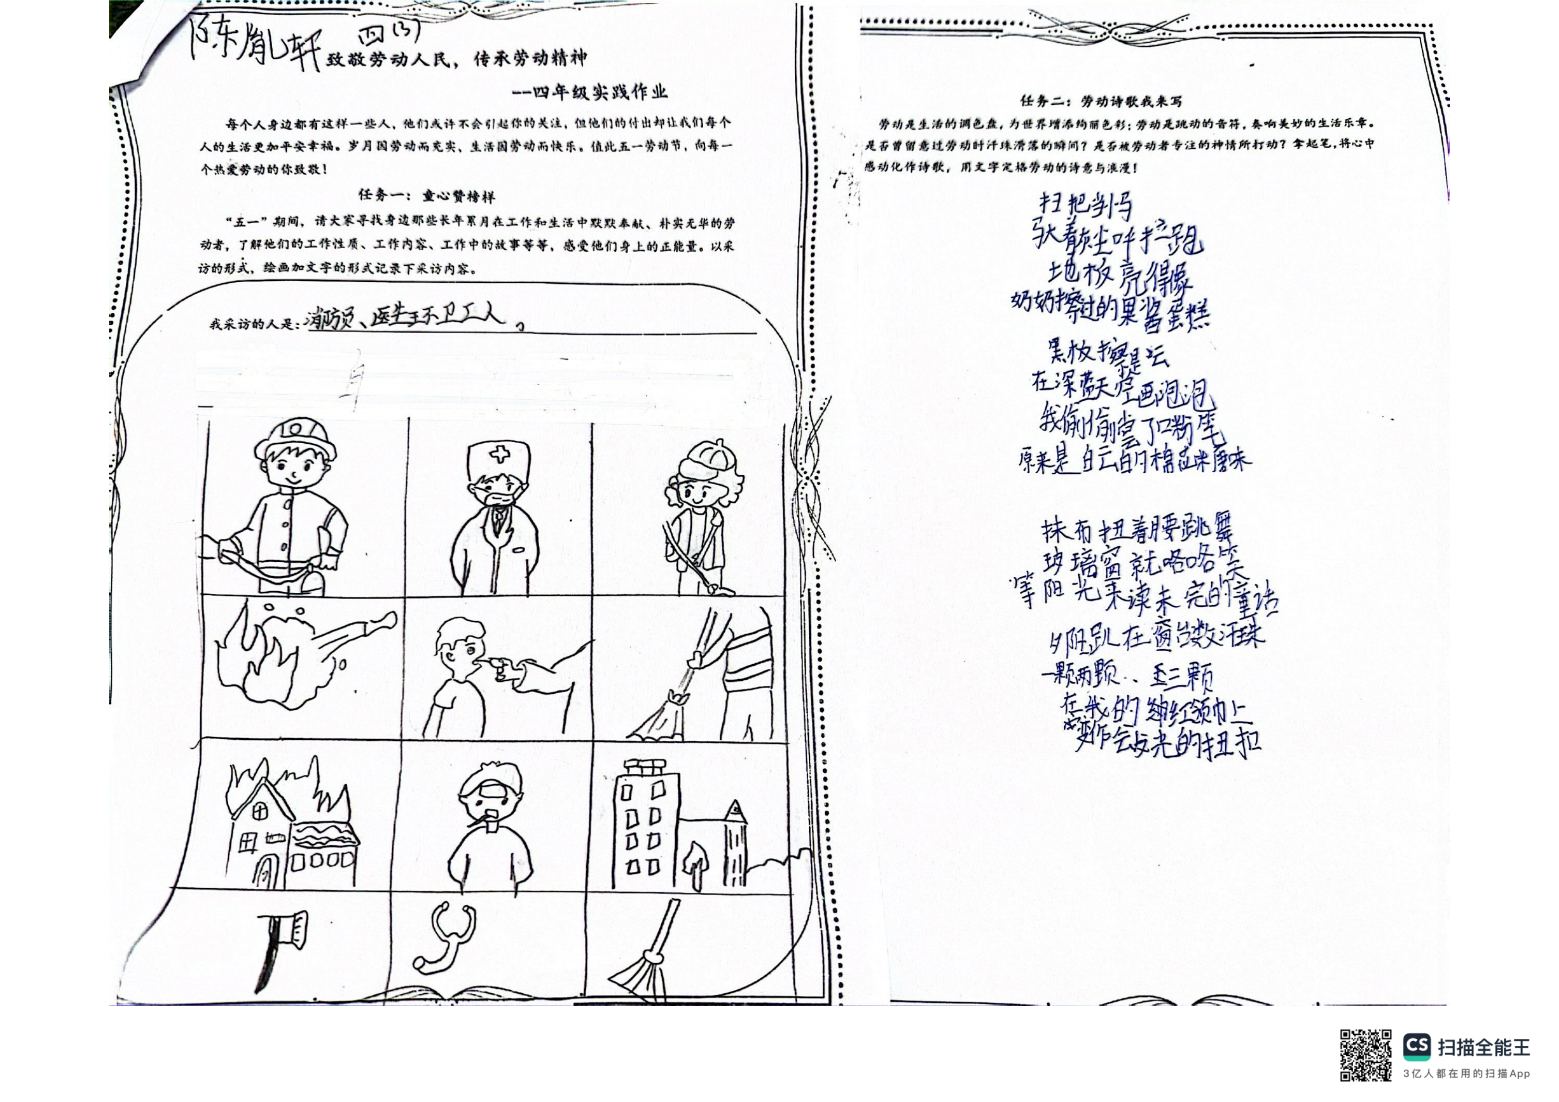 陈胤轩 四(3)
致敬劳动人民，传承劳动精神
--四年级实践作业
每个人身边都有这样一些人，他们或许不会引起你的关注，但他们的付出却让我们每个
人的生活更加平安幸福。岁月因劳动而充实、生活因劳动而快乐。值此五一劳动节，向每一
个热爱劳动的你致敬！
任务一：童心赞榜样
“五一”期间，请大家寻找身边那些长年累月在工作和生活中默默奉献、朴实无华的劳
动者，了解他们的工作性质、工作内容、工作中的故事等等，感受他们身上的正能量。以采
访的形式，绘画加文字的形式记录下采访内容。
我采访的人是：消防员、医生、环卫工人。
任务二：劳动诗歌我来写
劳动是生活的调色盘，为世界增添绚丽色彩；劳动是跳动的音符，奏响美妙的生活乐章。
是否曾留意过劳动时汗珠滑落的瞬间？是否被劳动者专注的神情所打动？拿起笔，将心中
感动化作诗歌，用文字定格劳动的诗意与浪漫！
扫把当马
驮着灰尘呼拉跑
地板亮得像
奶奶擦过的果酱蛋糕
黑板擦是云
在深蓝天空画泡泡
我偷偷尝了口粉笔
原来是白云的棉花味
抹布扭着腰跳舞
玻璃窗就咯咯笑
等阳光来读未完的童话
夕阳趴在窗台数汗珠
一颗两颗..三颗
在我的红领巾上
变作会发光的扭扣
CS 扫描全能王
3亿人都在用的扫描App